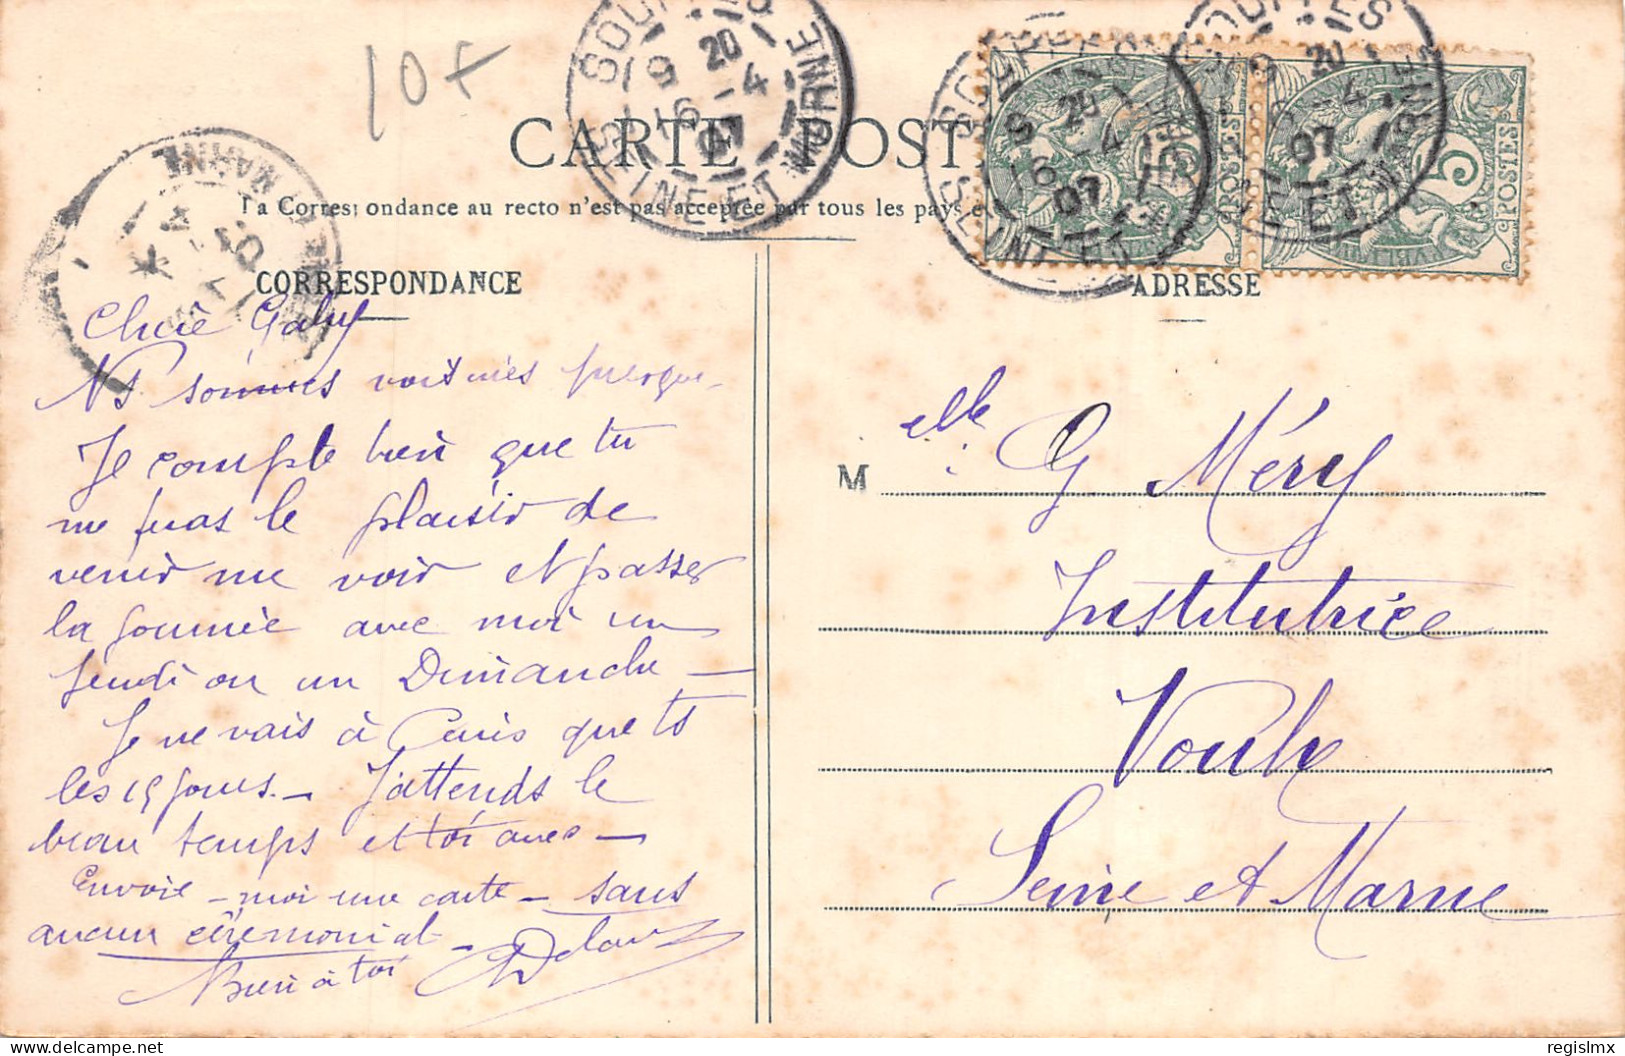 10f
CARTE POST
La Correspondance au recto n'est pas acceptée par tous les pays e
SOUPPES
SEINE ET MARNE
20 - 4
07
SEINE ET MARNE
20 - 4
07
5
POSTES
5
POSTES
MARNE
CORRESPONDANCE
ADRESSE
Chère Gaby
Ns sommes voisines presque.
Je compte bien que tu
me feras le plaisir de
venir me voir et passer
la journée avec moi un
jeudi ou un Dimanche —
Je ne vais à Paris que ts
les 15 jours. — J'attends le
beau temps et toi avec —
Envoie-moi une carte — sans
aucun cérémonial —
Bien à toi
M elle G Méry
Institutrice
Voulx
Seine et Marne
© delcampe.net
regislmx